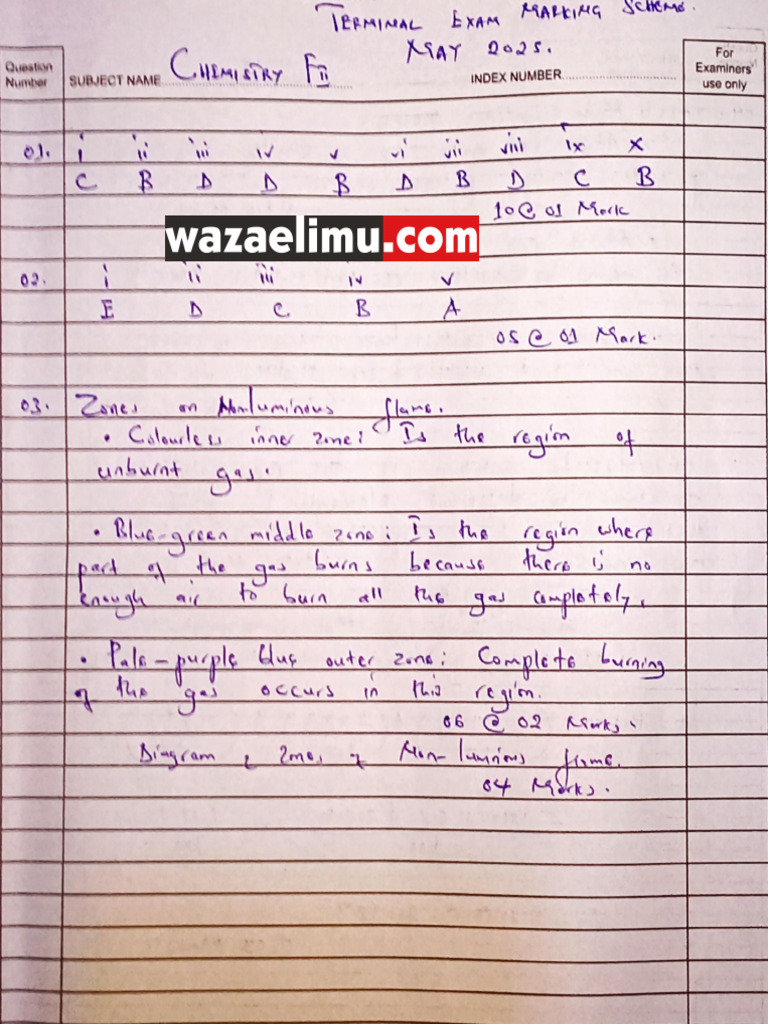 TERMINAL EXAM MARKING SCHEME.
MAY 2025.
Question Number
SUBJECT NAME CHEMISTRY FII
INDEX NUMBER
For Examiners' use only
01. i ii iii iv v vi vii viii ix x
C B D D B D B D C B
10 @ 01 Mark
wazaelimu.com
02. i ii iii iv v
E D C B A
05 @ 01 Mark.
03. Zones on Nonluminous flame.
• Colourless inner zone: Is the region of
unburnt gas.
• Blue-green middle zone: Is the region where
part of the gas burns because there is no
enough air to burn all the gas completely.
• Pale-purple blue outer zone: Complete burning
of the gas occurs in this region.
06 @ 02 Marks.
Diagram Non-luminous flame.
04 Marks.